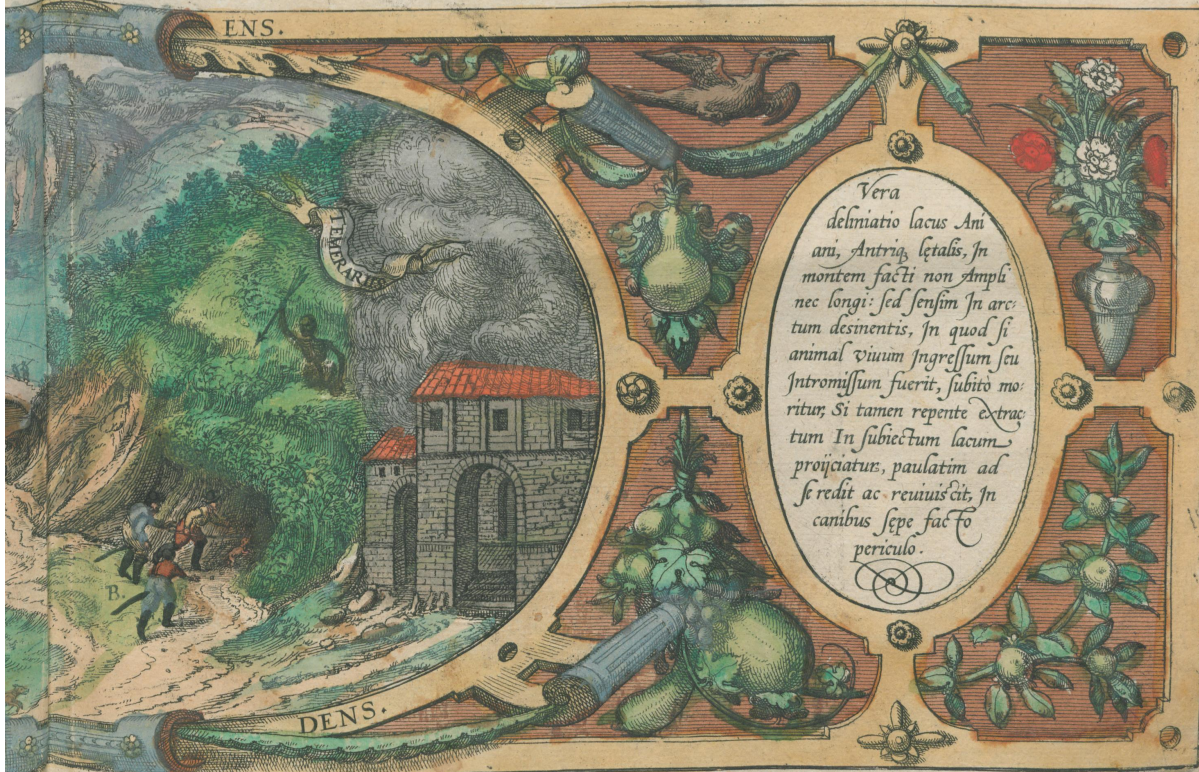 ENS.
TEMERARIIS
B.
DENS.
Vera
deliniatio lacus Ani
ani, Antriq; lętalis, In
montem facti non Ampli
nec longi: sed sensim In arc-
tum desinentis, In quod si
animal viuum Ingressum seu
Intromissum fuerit, subitò mo-
ritur, Si tamen repente extrac
tum In subiectum lacum
proijciatur, paulatim ad
se redit ac reuiuiscit, In
canibus sępe facto
periculo.